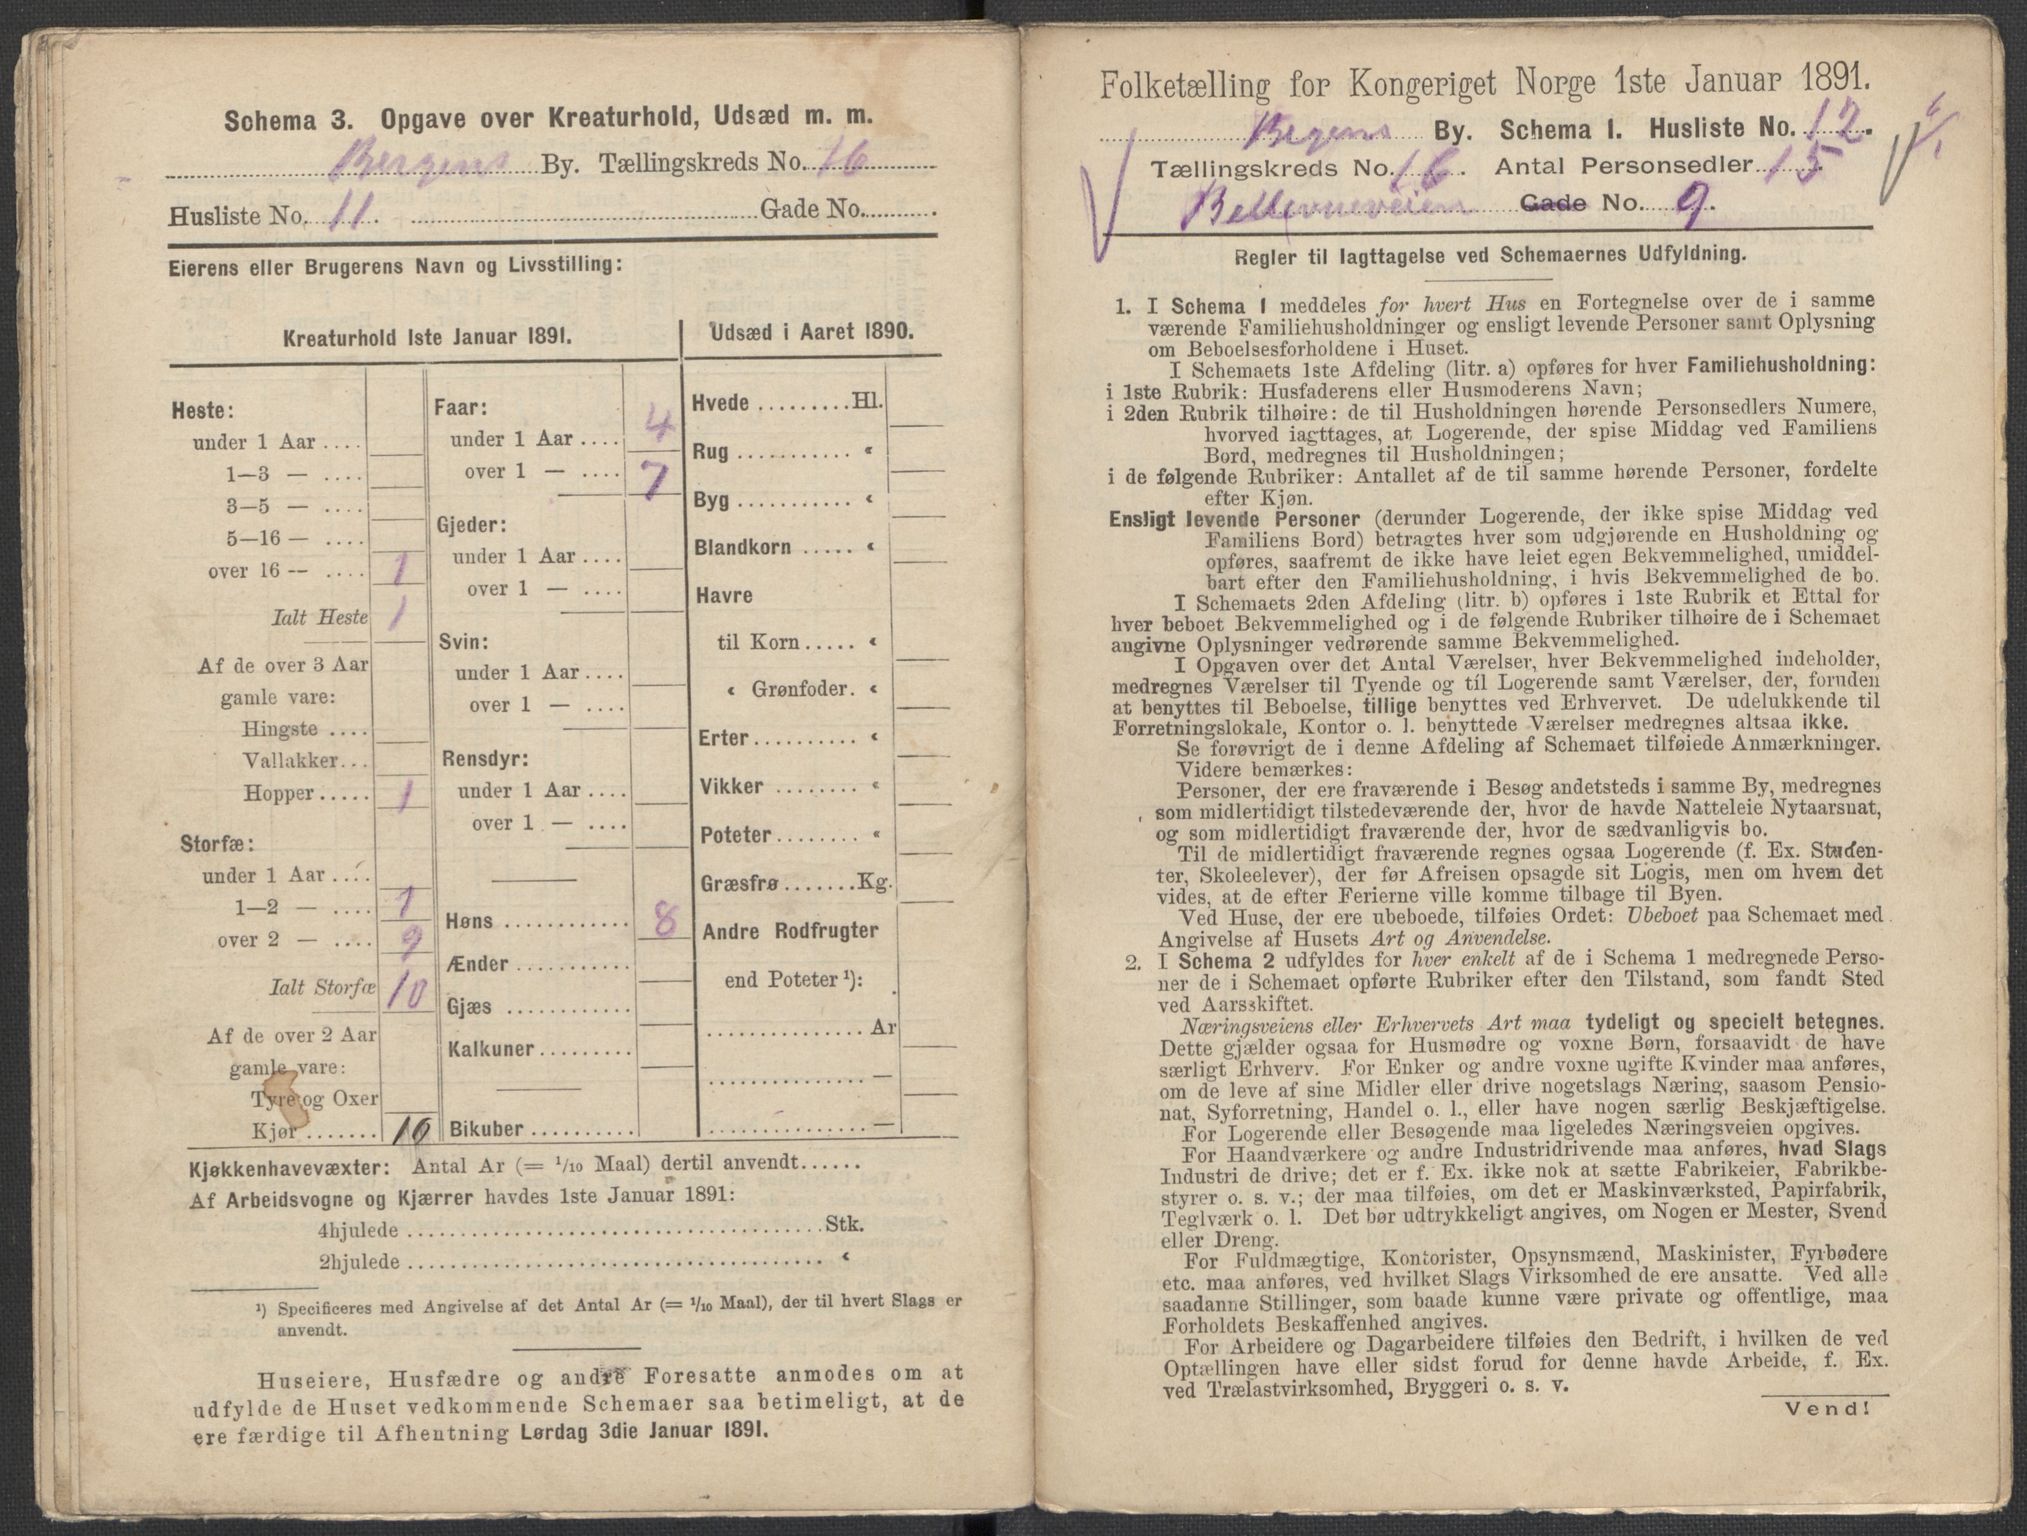 Schema 3. Opgave over Kreaturhold, Udsæd m. m.
Bergens By. Tællingskreds No. 16
Husliste No. 11. Gade No.
Eierens eller Brugerens Navn og Livsstilling:
Kreaturhold 1ste Januar 1891.
Heste:
under 1 Aar ....
1—3 — ....
3—5 — ....
5—16 — ....
over 16 — .... 1
Ialt Heste 1
Af de over 3 Aar
gamle vare:
Hingste ....
Vallakker...
Hopper..... 1
Storfæ:
under 1 Aar ....
1—2 — .... 1
over 2 — .... 9
Ialt Storfæ 10
Af de over 2 Aar
gamle vare:
Tyre og Oxer
Kjør ....... 10
Faar:
under 1 Aar .... 4
over 1 — .... 7
Gjeder:
under 1 Aar ....
over 1 — ....
Svin:
under 1 Aar ....
over 1 — ....
Rensdyr:
under 1 Aar ....
over 1 — ....
Høns ............ 8
Ænder ...........
Gjæs ............
Kalkuner.........
Bikuber ..........
Udsæd i Aaret 1890.
Hvede .........Hl.
Rug ........... «
Byg ........... «
Blandkorn ..... «
Havre
til Korn ..... «
« Grønfoder. «
Erter .......... «
Vikker ........ «
Poteter ........ «
Græsfrø .......Kg.
Andre Rodfrugter
end Poteter ¹):
............... Ar
............... —
............... —
Kjøkkenhavevæxter: Antal Ar (= 1/10 Maal) dertil anvendt......
Af Arbeidsvogne og Kjærrer havdes 1ste Januar 1891:
4hjulede ........................................ Stk.
2hjulede ........................................ «
¹) Specificeres med Angivelse af det Antal Ar (= 1/10 Maal), der til hvert Slags er
anvendt.
Huseiere, Husfædre og andre Foresatte anmodes om at
udfylde de Huset vedkommende Schemaer saa betimeligt, at de
ere færdige til Afhentning Lørdag 3die Januar 1891.
Folketælling for Kongeriget Norge 1ste Januar 1891.
Bergens By. Schema 1. Husliste No. 12.
Tællingskreds No. 16. Antal Personsedler 15.
Bellevueveien Gade No. 9.
Regler til Iagttagelse ved Schemaernes Udfyldning.
1. I Schema 1 meddeles for hvert Hus en Fortegnelse over de i samme
værende Familiehusholdninger og ensligt levende Personer samt Oplysning
om Beboelsesforholdene i Huset.
I Schemaets 1ste Afdeling (litr. a) opføres for hver Familiehusholdning:
i 1ste Rubrik: Husfaderens eller Husmoderens Navn;
i 2den Rubrik tilhøire: de til Husholdningen hørende Personsedlers Numere,
hvorved iagttages, at Logerende, der spise Middag ved Familiens
Bord, medregnes til Husholdningen;
i de følgende Rubriker: Antallet af de til samme hørende Personer, fordelte
efter Kjøn.
Ensligt levende Personer (derunder Logerende, der ikke spise Middag ved
Familiens Bord) betragtes hver som udgjørende en Husholdning og
opføres, saafremt de ikke have leiet egen Bekvemmelighed, umiddel-
bart efter den Familiehusholdning, i hvis Bekvemmelighed de bo.
I Schemaets 2den Afdeling (litr. b) opføres i 1ste Rubrik et Ettal for
hver beboet Bekvemmelighed og i de følgende Rubriker tilhøire de i Schemaet
angivne Oplysninger vedrørende samme Bekvemmelighed.
I Opgaven over det Antal Værelser, hver Bekvemmelighed indeholder,
medregnes Værelser til Tyende og til Logerende samt Værelser, der, foruden
at benyttes til Beboelse, tillige benyttes ved Erhvervet. De udelukkende til
Forretningslokale, Kontor o. l. benyttede Værelser medregnes altsaa ikke.
Se forøvrigt de i denne Afdeling af Schemaet tilføiede Anmærkninger.
Videre bemærkes:
Personer, der ere fraværende i Besøg andetsteds i samme By, medregnes
som midlertidigt tilstedeværende der, hvor de havde Natteleie Nytaarsnat,
og som midlertidigt fraværende der, hvor de sædvanligvis bo.
Til de midlertidigt fraværende regnes ogsaa Logerende (f. Ex. Studen-
ter, Skoleelever), der før Afreisen opsagde sit Logis, men om hvem det
vides, at de efter Ferierne ville komme tilbage til Byen.
Ved Huse, der ere ubeboede, tilføies Ordet: Ubeboet paa Schemaet med
Angivelse af Husets Art og Anvendelse.
2. I Schema 2 udfyldes for hver enkelt af de i Schema 1 medregnede Perso-
ner de i Schemaet opførte Rubriker efter den Tilstand, som fandt Sted
ved Aarsskiftet.
Næringsveiens eller Erhvervets Art maa tydeligt og specielt betegnes.
Dette gjælder ogsaa for Husmødre og voxne Børn, forsaavidt de have
særligt Erhverv. For Enker og andre voxne ugifte Kvinder maa anføres,
om de leve af sine Midler eller drive nogetslags Næring, saasom Pensio-
nat, Syforretning, Handel o. l., eller have nogen særlig Beskjæftigelse.
For Logerende eller Besøgende maa ligeledes Næringsveien opgives.
For Haandværkere og andre Industridrivende maa anføres, hvad Slags
Industri de drive; det er f. Ex. ikke nok at sætte Fabrikeier, Fabrikbe-
styrer o. s. v.; der maa tilføies, om det er Maskinværksted, Papirfabrik,
Teglværk o. l. Det bør udtrykkeligt angives, om Nogen er Mester, Svend
eller Dreng.
For Fuldmægtige, Kontorister, Opsynsmænd, Maskinister, Fyrbødere
etc. maa anføres, ved hvilket Slags Virksomhed de ere ansatte. Ved alle
saadanne Stillinger, som baade kunne være private og offentlige, maa
Forholdets Beskaffenhed angives.
For Arbeidere og Dagarbeidere tilføies den Bedrift, i hvilken de ved
Optællingen have eller sidst forud for denne havde Arbeide, f. Ex.
ved Trælastvirksomhed, Bryggeri o. s. v.
Vend!